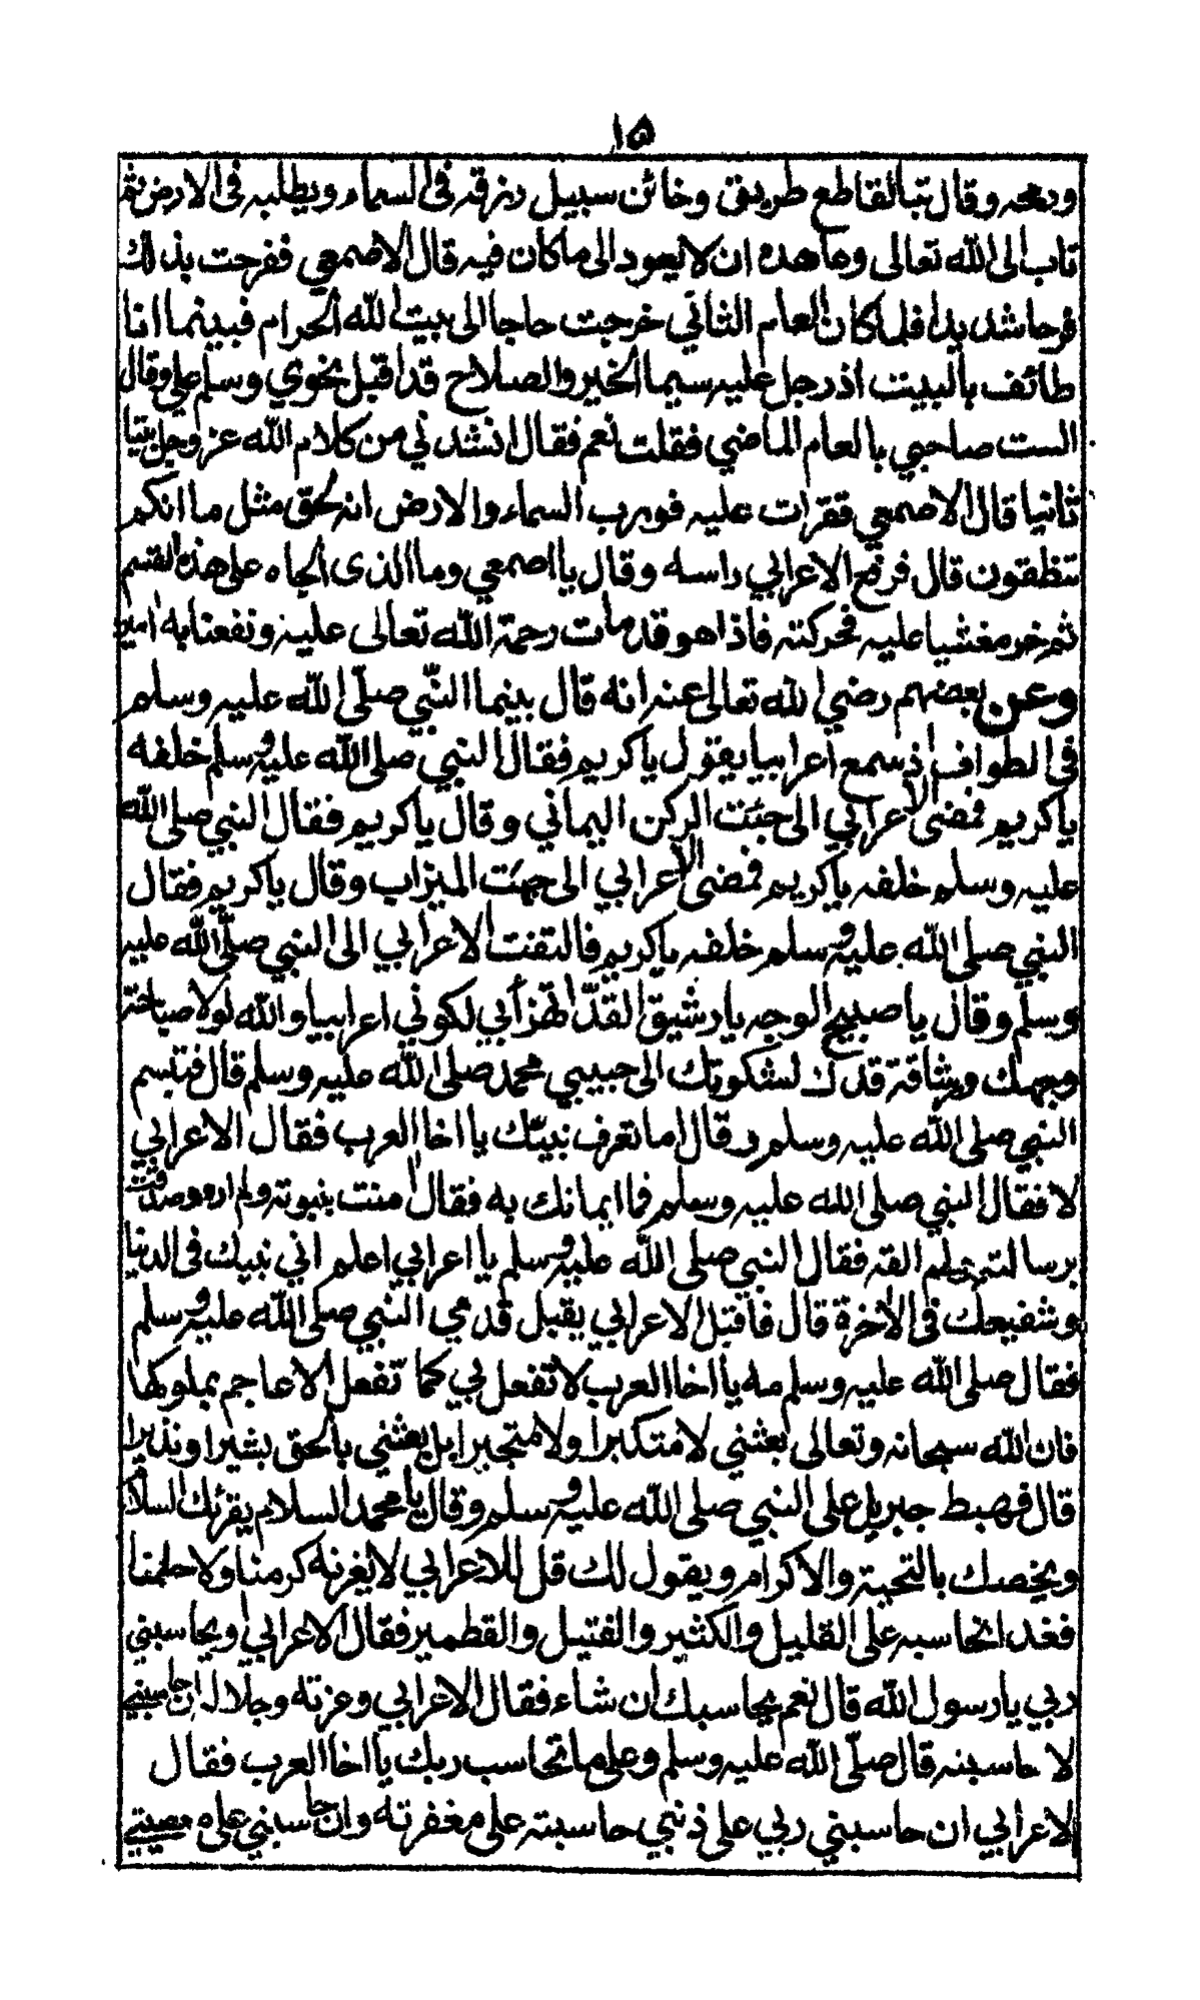 ١٥
ورمحه وقال تبا لقاطع طريق وخائن سبيل رزقه في السماء ويطلبه في الارض ثم
تاب الى الله تعالى وعاهده ان لا يعود الى ماكان فيه قال الاصمعي ففرحت بذلك
فرحا شديدا فلما كان العام الثاني خرجت حاجا الى بيت الله الحرام فبينما انا
طائف بالبيت اذ رجل عليه سيما الخير والصلاح قد اقبل نحوي وسلم علي وقال
الست صاحبي بالعام الماضي فقلت نعم فقال انشدني من كلام الله عز وجل بيتا
ثانيا قال الاصمعي فقرات عليه فورب السماء والارض انه لحق مثل ما انكم
تنطقون قال فرفع الاعرابي راسه وقال يا اصمعي وما الذى الجاه على هذه القسم
ثم خر مغشيا عليه فحركته فاذا هو قد مات رحمة الله تعالى عليه ونفعنا به امين
وعن بعضهم رضي الله تعالى عنه انه قال بينما النبي صلى الله عليه وسلم
في الطواف اذ سمع اعرابيا يقول يا كريم فقال النبي صلى الله عليه وسلم خلفه
يا كريم فمضى الاعرابي الى جهت الركن اليماني وقال يا كريم فقال النبي صلى الله
عليه وسلم خلفه يا كريم فمضى الاعرابي الى جهت الميزاب وقال يا كريم فقال
النبي صلى الله عليه وسلم خلفه يا كريم فالتفت الاعرابي الى النبي صلى الله عليه
وسلم وقال يا صبيح الوجه يا رشيق القد اتهزأ بي لكوني اعرابيا والله لولا صباحة
وجهك ورشاقة قدك لشكوتك الى حبيبي محمد صلى الله عليه وسلم قال فتبسم
النبي صلى الله عليه وسلم وقال اما تعرف نبيك يا اخا العرب فقال الاعرابي
لا فقال النبي صلى الله عليه وسلم فما ايمانك به فقال امنت بنبوته ولم اره وصدقت
برسالته ولم القه فقال النبي صلى الله عليه وسلم يا اعرابي اعلم اني نبيك في الدنيا
وشفيعك في الآخرة قال فاقبل الاعرابي يقبل قدمي النبي صلى الله عليه وسلم
فقال صلى الله عليه وسلم مه يا اخا العرب لا تفعل بي كما تفعل الاعاجم بملوكها
فان الله سبحانه وتعالى بعثني لا متكبرا ولا متجبرا بل بعثني بالحق بشيرا ونذيرا
قال فهبط جبريل على النبي صلى الله عليه وسلم وقال يا محمد السلام يقرئك السلام
ويخصك بالتحية والاكرام ويقول لك قل للاعرابي لا يغرنه كرمنا ولا حلمنا
فغدا نحاسبه على القليل والكثير والفتيل والقطمير فقال الاعرابي ويحاسبني
ربي يا رسول الله قال نعم يحاسبك ان شاء فقال الاعرابي وعزته وجلاله ان حاسبني
لا حاسبنه قال صلى الله عليه وسلم وعلى ما تحاسب ربك يا اخا العرب فقال
لاعرابي ان حاسبني ربي على ذنبي حاسبته على مغفرته وان حاسبني على معصيتي